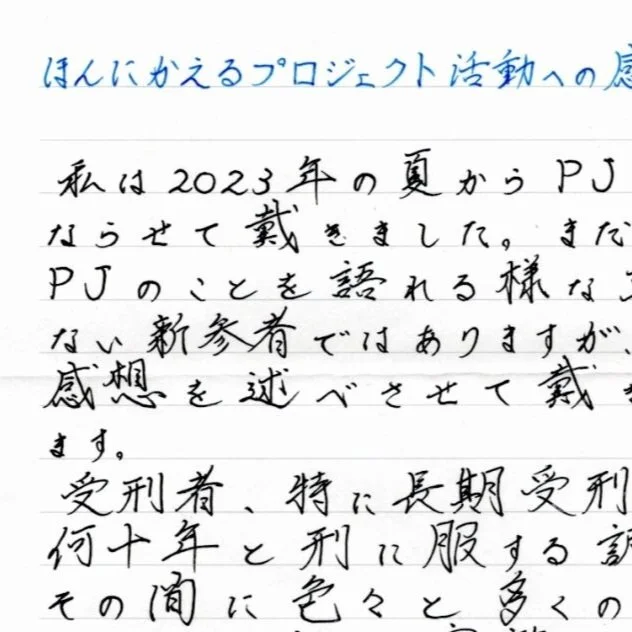 ほんにかえるプロジェクト活動への感
私は2023年の夏からPJ
ならせて戴きました。まだ
PJのことを語れる様な
ない新参者ではありますが、
感想を述べさせて戴き
ます。
受刑者、特に長期受刑
何十年と刑に服する訳
その間に色々と多くの